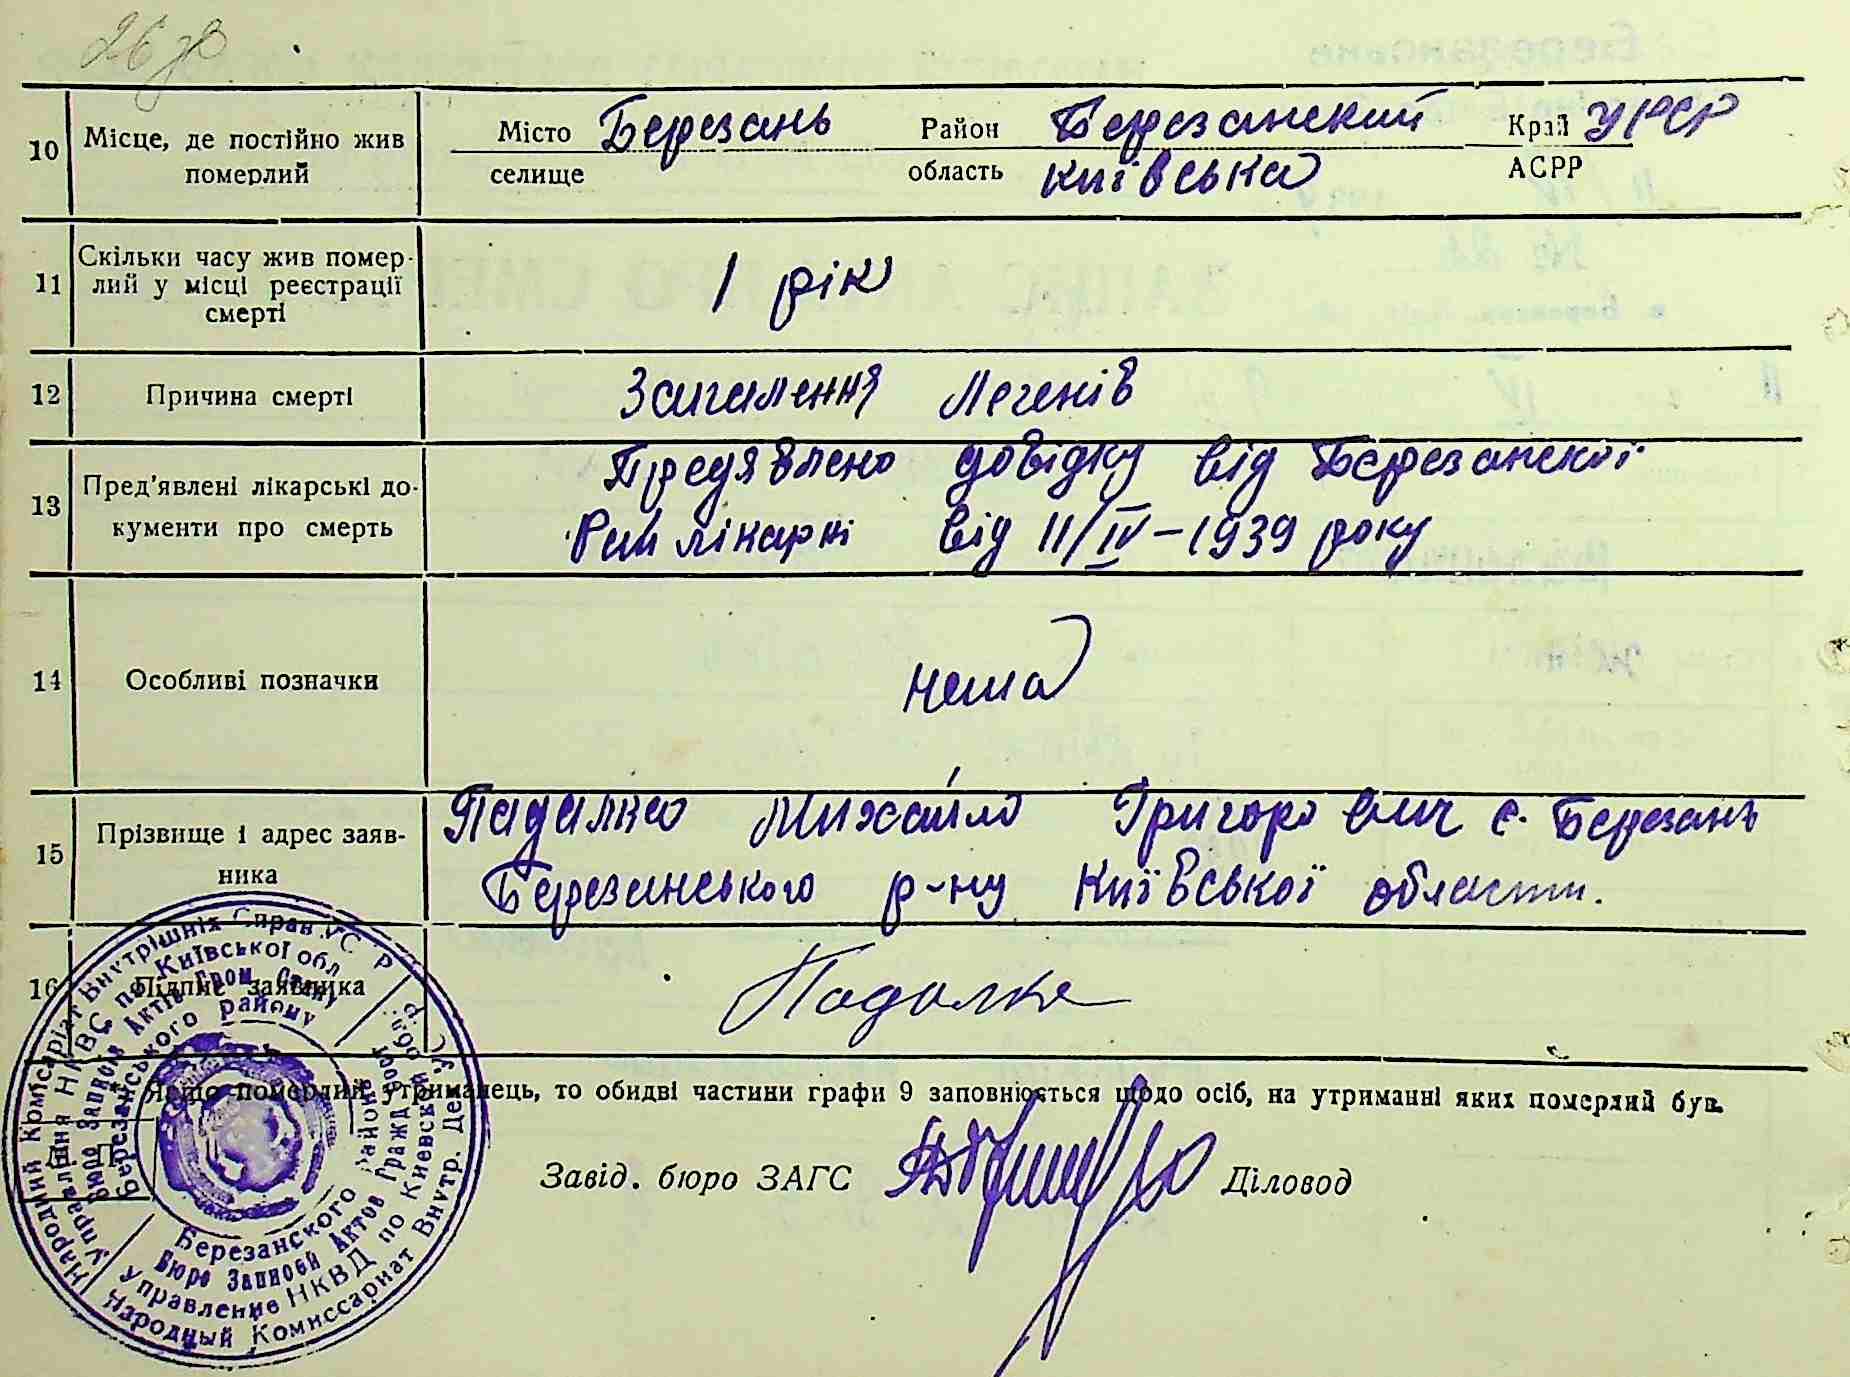 26 зв
10 Місце, де постійно жив померлий
Місто Березань Район Березанский Край УРСР
селище область київська АСРР
11 Скільки часу жив помер-
лий у місці реєстрації
смерті
1 рік
12 Причина смерті
Запалення легенів
13 Пред'явлені лікарські до-
кументи про смерть
Предявлено довідку від Березанскої
Рай лікарні від 11/IV-1939 року
14 Особливі позначки
нема
15 Прізвище і адрес заяв-
ника
Падалко Михайло Григорович с. Березань
Березанського р-ну Київської области.
16 Підпис заявника
Падалка
Якщо померлий утриманець, то обидві частини графи 9 заповнюється щодо осіб, на утриманні яких померлий був.
Завід. бюро ЗАГС Діловод
Народний Комісаріат Внутрішніх Справ УСРР
Управління НКВС по Київської обл
Бюро Записи Актів Гром. Стану
Березанського району
Березанского района
Бюро Записей Актов Гражд Сост
Управление НКВД по Киевской обл.
Народный Комиссариат Внутр. Дел УССР